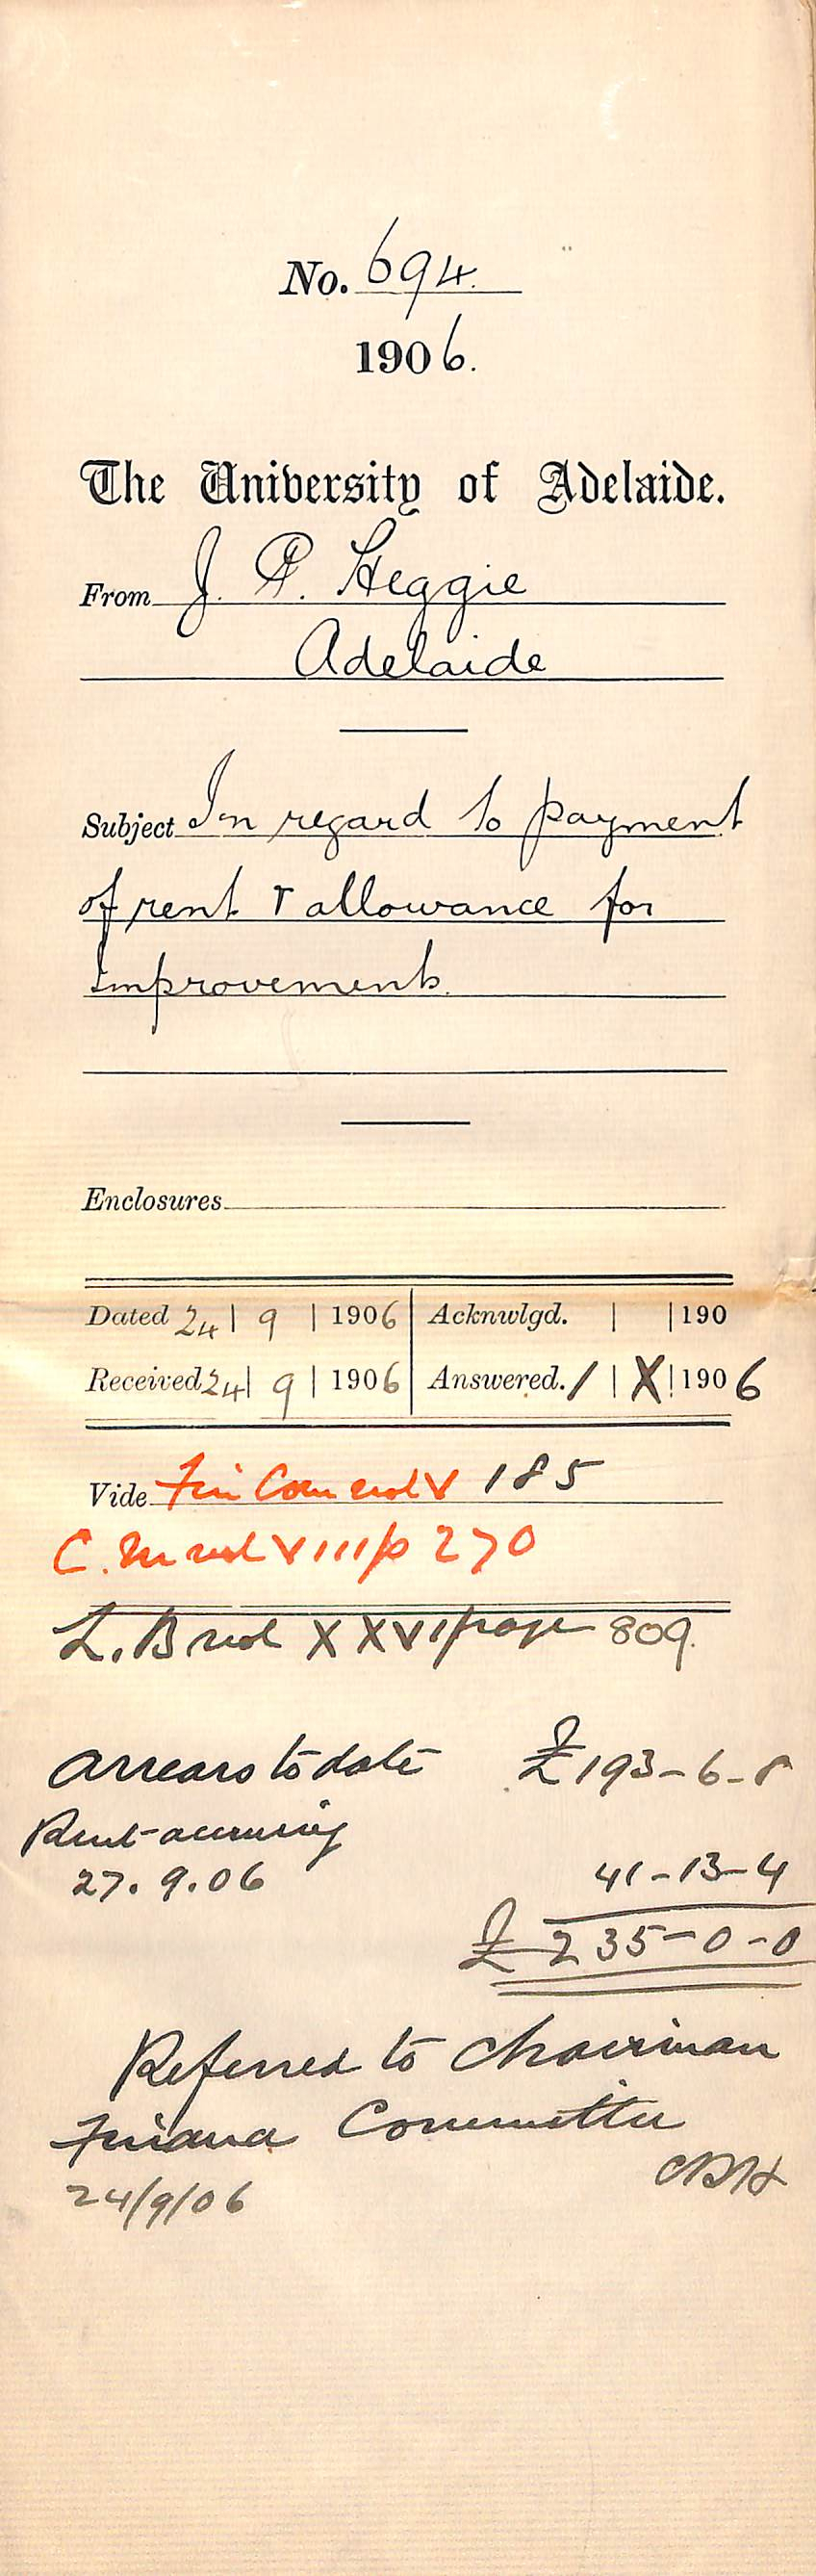 No. 694.
1906.
The University of Adelaide.
From J. P. Heggie
Adelaide
Subject In regard to payment
of rent & allowance for
improvements.
Enclosures
Dated 24 | 9 | 1906 Acknwlgd. | | 190
Received 24 | 9 | 1906 Answered. 1 | X | 1906
Vide Fin Com vol V 185
C.M vol VIII p 270
L.B vol XXVI page 809.
Arrears to date £193-6-8
Rent accruing
27.9.06 41-13-4
£235-0-0
Referred to Chairman
Finance Committee
24/9/06